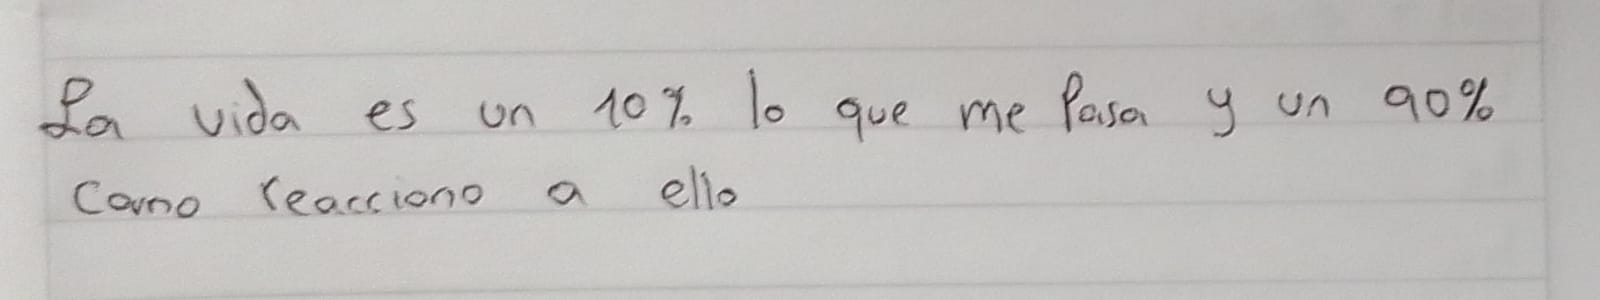 La vida es un 10% lo que me Pasa y un 90%
Como reacciono a ello